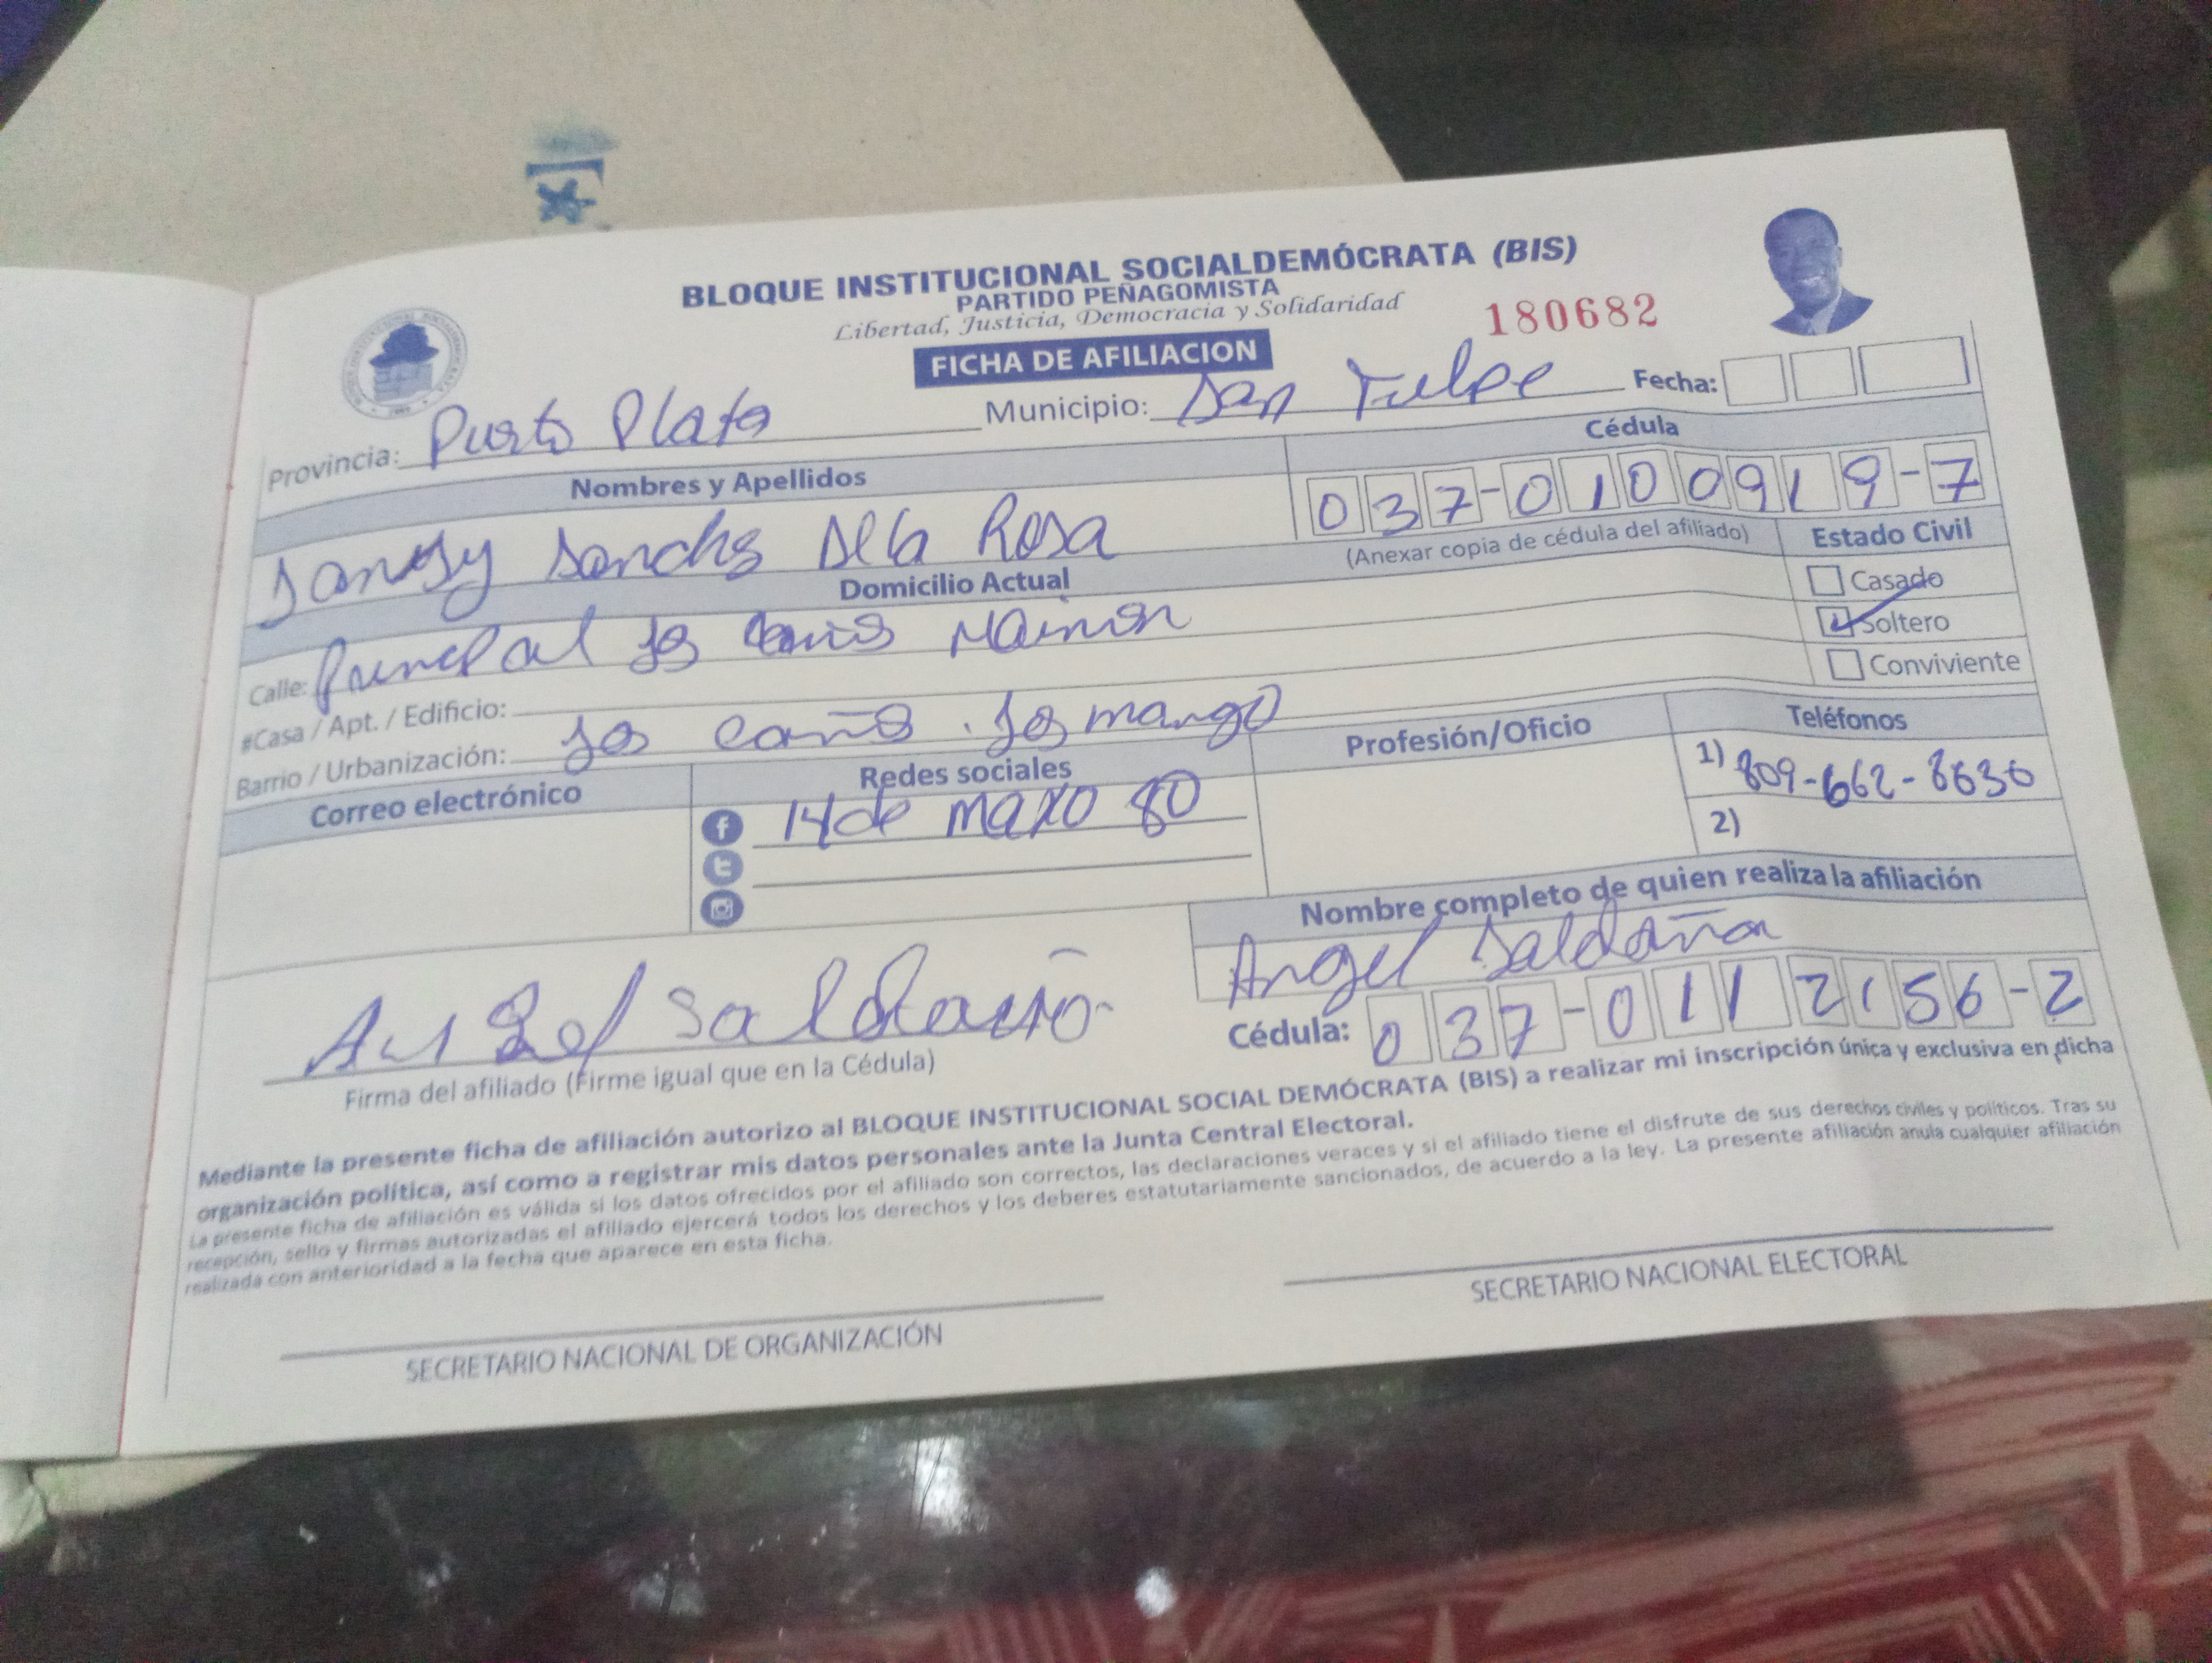 BLOQUE INSTITUCIONAL SOCIALDEMÓCRATA (BIS)
PARTIDO PEÑAGOMISTA
Libertad, Justicia, Democracia y Solidaridad
180682
FICHA DE AFILIACION
Provincia: Purto Plata Municipio: San Felpe Fecha:
Nombres y Apellidos Cédula
Sanchs Dela Rosa 037-0100919-7
(Anexar copia de cédula del afiliado) Estado Civil
Domicilio Actual
Casado
Calle: Mainon
Soltero
#Casa / Apt. / Edificio:
Conviviente
Barrio / Urbanización: Jos caño. Jos mango
Correo electrónico Redes sociales Profesión/Oficio Teléfonos
14 de maxo 80
1) 809-662-8630
2)
Nombre completo de quien realiza la afiliación
Angel Saldaña
Cédula: 037-0112156-2
Firma del afiliado (Firme igual que en la Cédula)
Mediante la presente ficha de afiliación autorizo al BLOQUE INSTITUCIONAL SOCIAL DEMÓCRATA (BIS) a realizar mi inscripción única y exclusiva en dicha
organización política, así como a registrar mis datos personales ante la Junta Central Electoral.
La presente ficha de afiliación es válida si los datos ofrecidos por el afiliado son correctos, las declaraciones veraces y si el afiliado tiene el disfrute de sus derechos civiles y políticos. Tras su
recepción, sello y firmas autorizadas el afiliado ejercerá todos los derechos y los deberes estatutariamente sancionados, de acuerdo a la ley. La presente afiliación anula cualquier afiliación
realizada con anterioridad a la fecha que aparece en esta ficha.
SECRETARIO NACIONAL DE ORGANIZACIÓN
SECRETARIO NACIONAL ELECTORAL